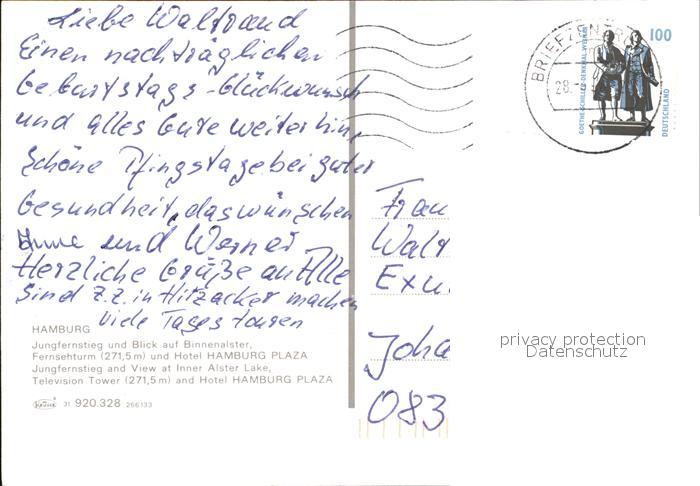 Liebe Waltraud
Einen nachträglichen
Geburtstags-Glückwunsch
und alles Gute weiterhin,
Schöne Pfingstage bei guter
Gesundheit, das wünschen
Anne und Werner
Herzliche Grüße an Alle
Sind z.z. in Hitzacker machen
viele Tagestouren
HAMBURG
Jungfernstieg und Blick auf Binnenalster,
Fernsehturm (271,5 m) und Hotel HAMBURG PLAZA
Jungfernstieg and View at Inner Alster Lake,
Television Tower (271,5 m) and Hotel HAMBURG PLAZA
KRÜGER 31 920.328 266133
BRIEFZENTR
28.
100
GOETHE-SCHILLER-DENKMAL WEIMAR
DEUTSCHLAND
Frau
Walt
Exu
Joha
083
privacy protection
Datenschutz